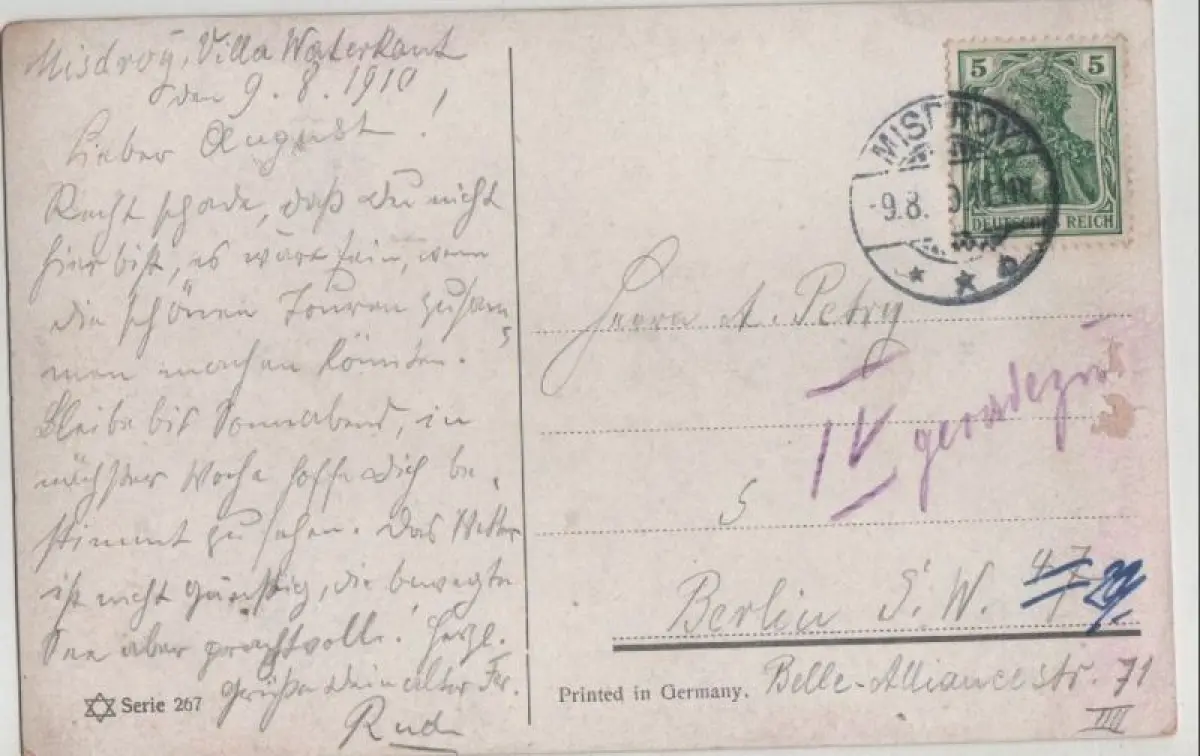 Misdroy, Villa Waterkant
den 9.8.1910,
Lieber August!
Recht schade, daß Du nicht
hier bist, es wäre fein, wenn
die schönen Touren zusam-
men machen könnten.
Bleibe bis Sonnabend, in
nächster Woche hoffe Dich be-
stimmt zu sehen. Das Wetter
ist nicht günstig, die bewegte
See aber prachtvoll. Herzl.
Grüße Dein alter
Rudi
Serie 267
5 5
DEUTSCHES REICH
MISDROY
9.8.
Herrn A. Petry
IV
S
Berlin S.W. 47
29
Belle-Alliancestr. 71
IIII
Printed in Germany.